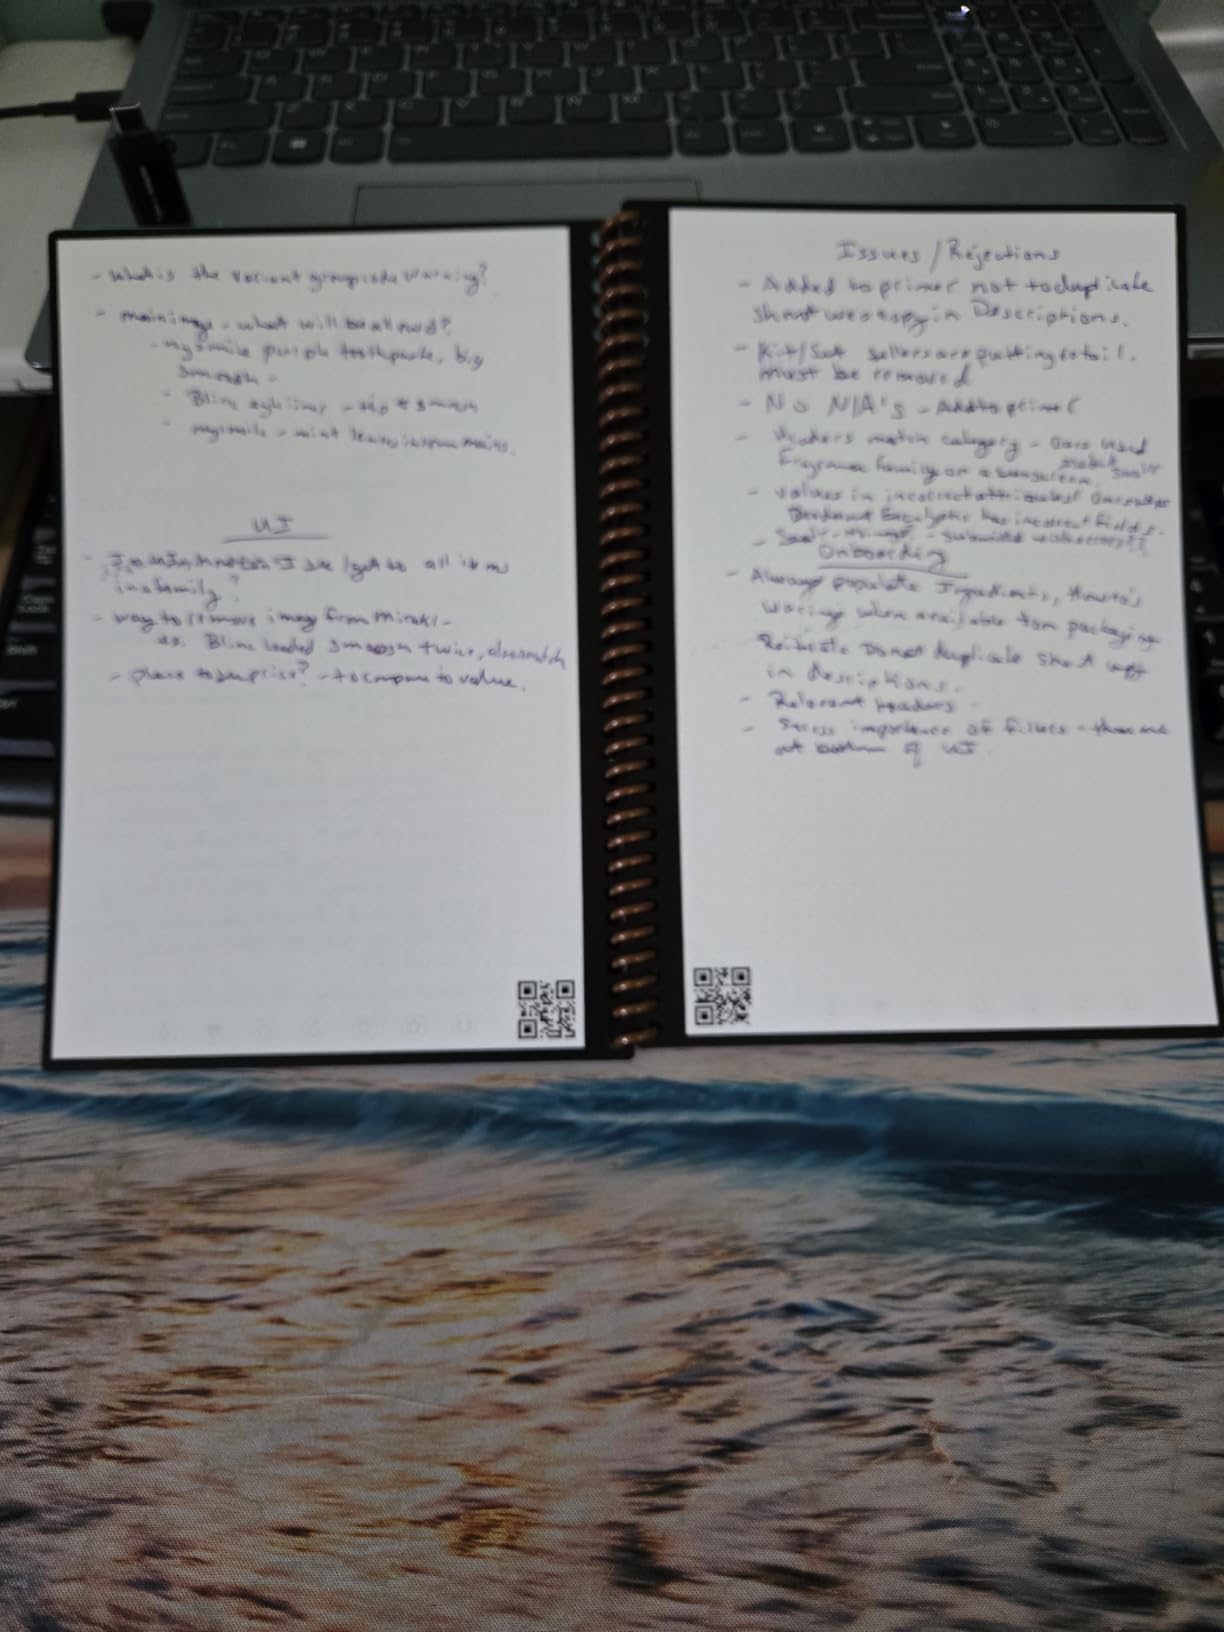 - What is the variant group code warning?
- main imgs - what will be allowed?
- mysmile purple toothpaste, big
smoosh -
- Blinc eyeliner - tip & smoosh
- mysmile - mint leaves in some mains.
UI
I see/get to all items
in a family?
- way to remove image from Mirakl -
ex. Blinc loaded smoosh twice,
- place to see price? - to compare to value.
Issues / Rejections
- Added to primer not to duplicate
short copy in Descriptions.
- Kit/Set sellers are putting total.
must be removed
- No N/A's - Add to primer
- Headers match category - One used
Fragrance family on a sunscreen.
- values in incorrect attributes!
Deodorant Eucalyptus has incorrect fields.
Onboarding
- Always populate Ingredients, How to's
warnings when available from packaging
Reiterate Do not duplicate short copy
in descriptions.
- Relevant headers -
- Stress importance of filters - these are
at bottom of UI.